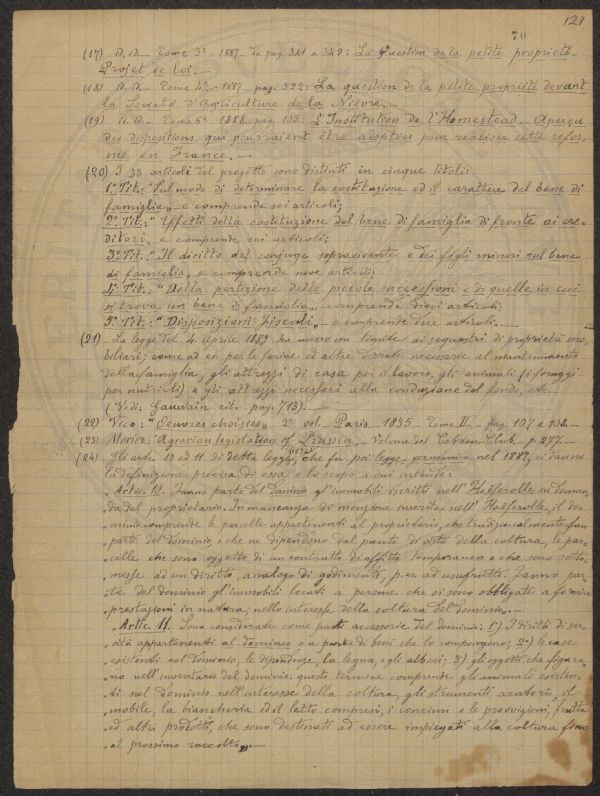 121
70
(17) id. id. - Tome 3e - 1887 - da pag. 341 a 349: La Question de la petite propriété -
Projet de loi. —
(18) id. id. - Tome 4e - 1887 - pag. 522: La question de la petite propriété devant
la Société d'Agriculture de la Nièvre. —
(19) id. id. - Tome 5e 1888 - pag. 103: L'Institution de l'Homestead - Aperçu
des dispositions qui pourraient être adoptées pour realiser cette refor-
me en France. —
(20) I 33 articoli del progetto sono distinti in cinque titoli:
1° Tit.: "Sul modo di determinare la costituzione ed il carattere del bene di
famiglia" e comprende sei articoli;
2° Tit.: "Effetti della costituzione del bene di famiglia di fronte ai cre-
ditori" e comprende sei articoli;
3° Tit.: "Il diritto del conjuge sopravivente e dei figli minori sul bene
di famiglia" e comprende nove articoli;
4° Tit.: "Della partizione delle piccole successioni e di quelle in cui
si trova un bene di famiglia" - comprende dieci articoli;
5° Tit.: "Disposizioni fiscali" - e comprende due articoli. —
(21) - La legge del 4 Aprile 1889 ha messo un limite ai sequestri di proprietà mo-
biliari; come ad es. per le farine ed altre derrate necessarie al mantenimento
della famiglia, gli attrezzi di casa per il lavoro, gli animali (i foraggi
per nutrirli) e gli attrezzi necessari alla conduzione del fondo, etc.
(Vedi: Gauvain cit. pag. 713). —
(22) Vico: "Oeuvres choisies" 2° vol. Paris. 1835 - Tome II - pag. 107 e 108. —
(23) Morier: "Agrarian legislation of Prussia" - Volume del Cobden Club - p. 277. —
(24) Gli artic. 10 ed 11 di detta legge, che fu poi legge germanica nel 1887, ci danno
la definizione precisa di essa e lo scopo a cui intende:
"Artic. 10. Fanno parte del dominio gl'immobili iscritti nell'Hoëferolle su doman-
"da del proprietario. In mancanza di menzione inserita nell'Hoëferolle, il do-
"minio comprende le parcelle appartenenti al proprietario, che tradizionalmente fan
"parte del dominio e che ne dipendono dal punto di vista della coltura, le par-
"celle che sono oggetto di un contratto di affitto temporaneo o che sono sotto-
"messe ad un diritto, analogo di godimento, p. es. ad usufrutto. Fanno par-
"te del dominio gl'immobili locati a persone che si sono obbligate a fornire
"prestazioni in natura, nello interesse della coltura del dominio. —
"Artic. 11. Sono considerate come parti accessorie del dominio: 1°) I diritti di ser-
"vità appartenenti al dominio o a parte di beni che lo compongono; 2°) le case
"esistenti nel dominio, le dipendenze, la legna, egli alberi; 3°) gli oggetti che figura-
"no nell'inventario del dominio: questo termine comprende gli animali esisten-
"ti nel dominio nell'interesse della coltura, gli strumenti aratorii, il
"mobile, la biancheria ed il letto compresi, i concimi e le provvigioni, frutta
"ed altri prodotti, che sono destinati ad essere impiegati alla coltura fino
"al prossimo raccolto". —